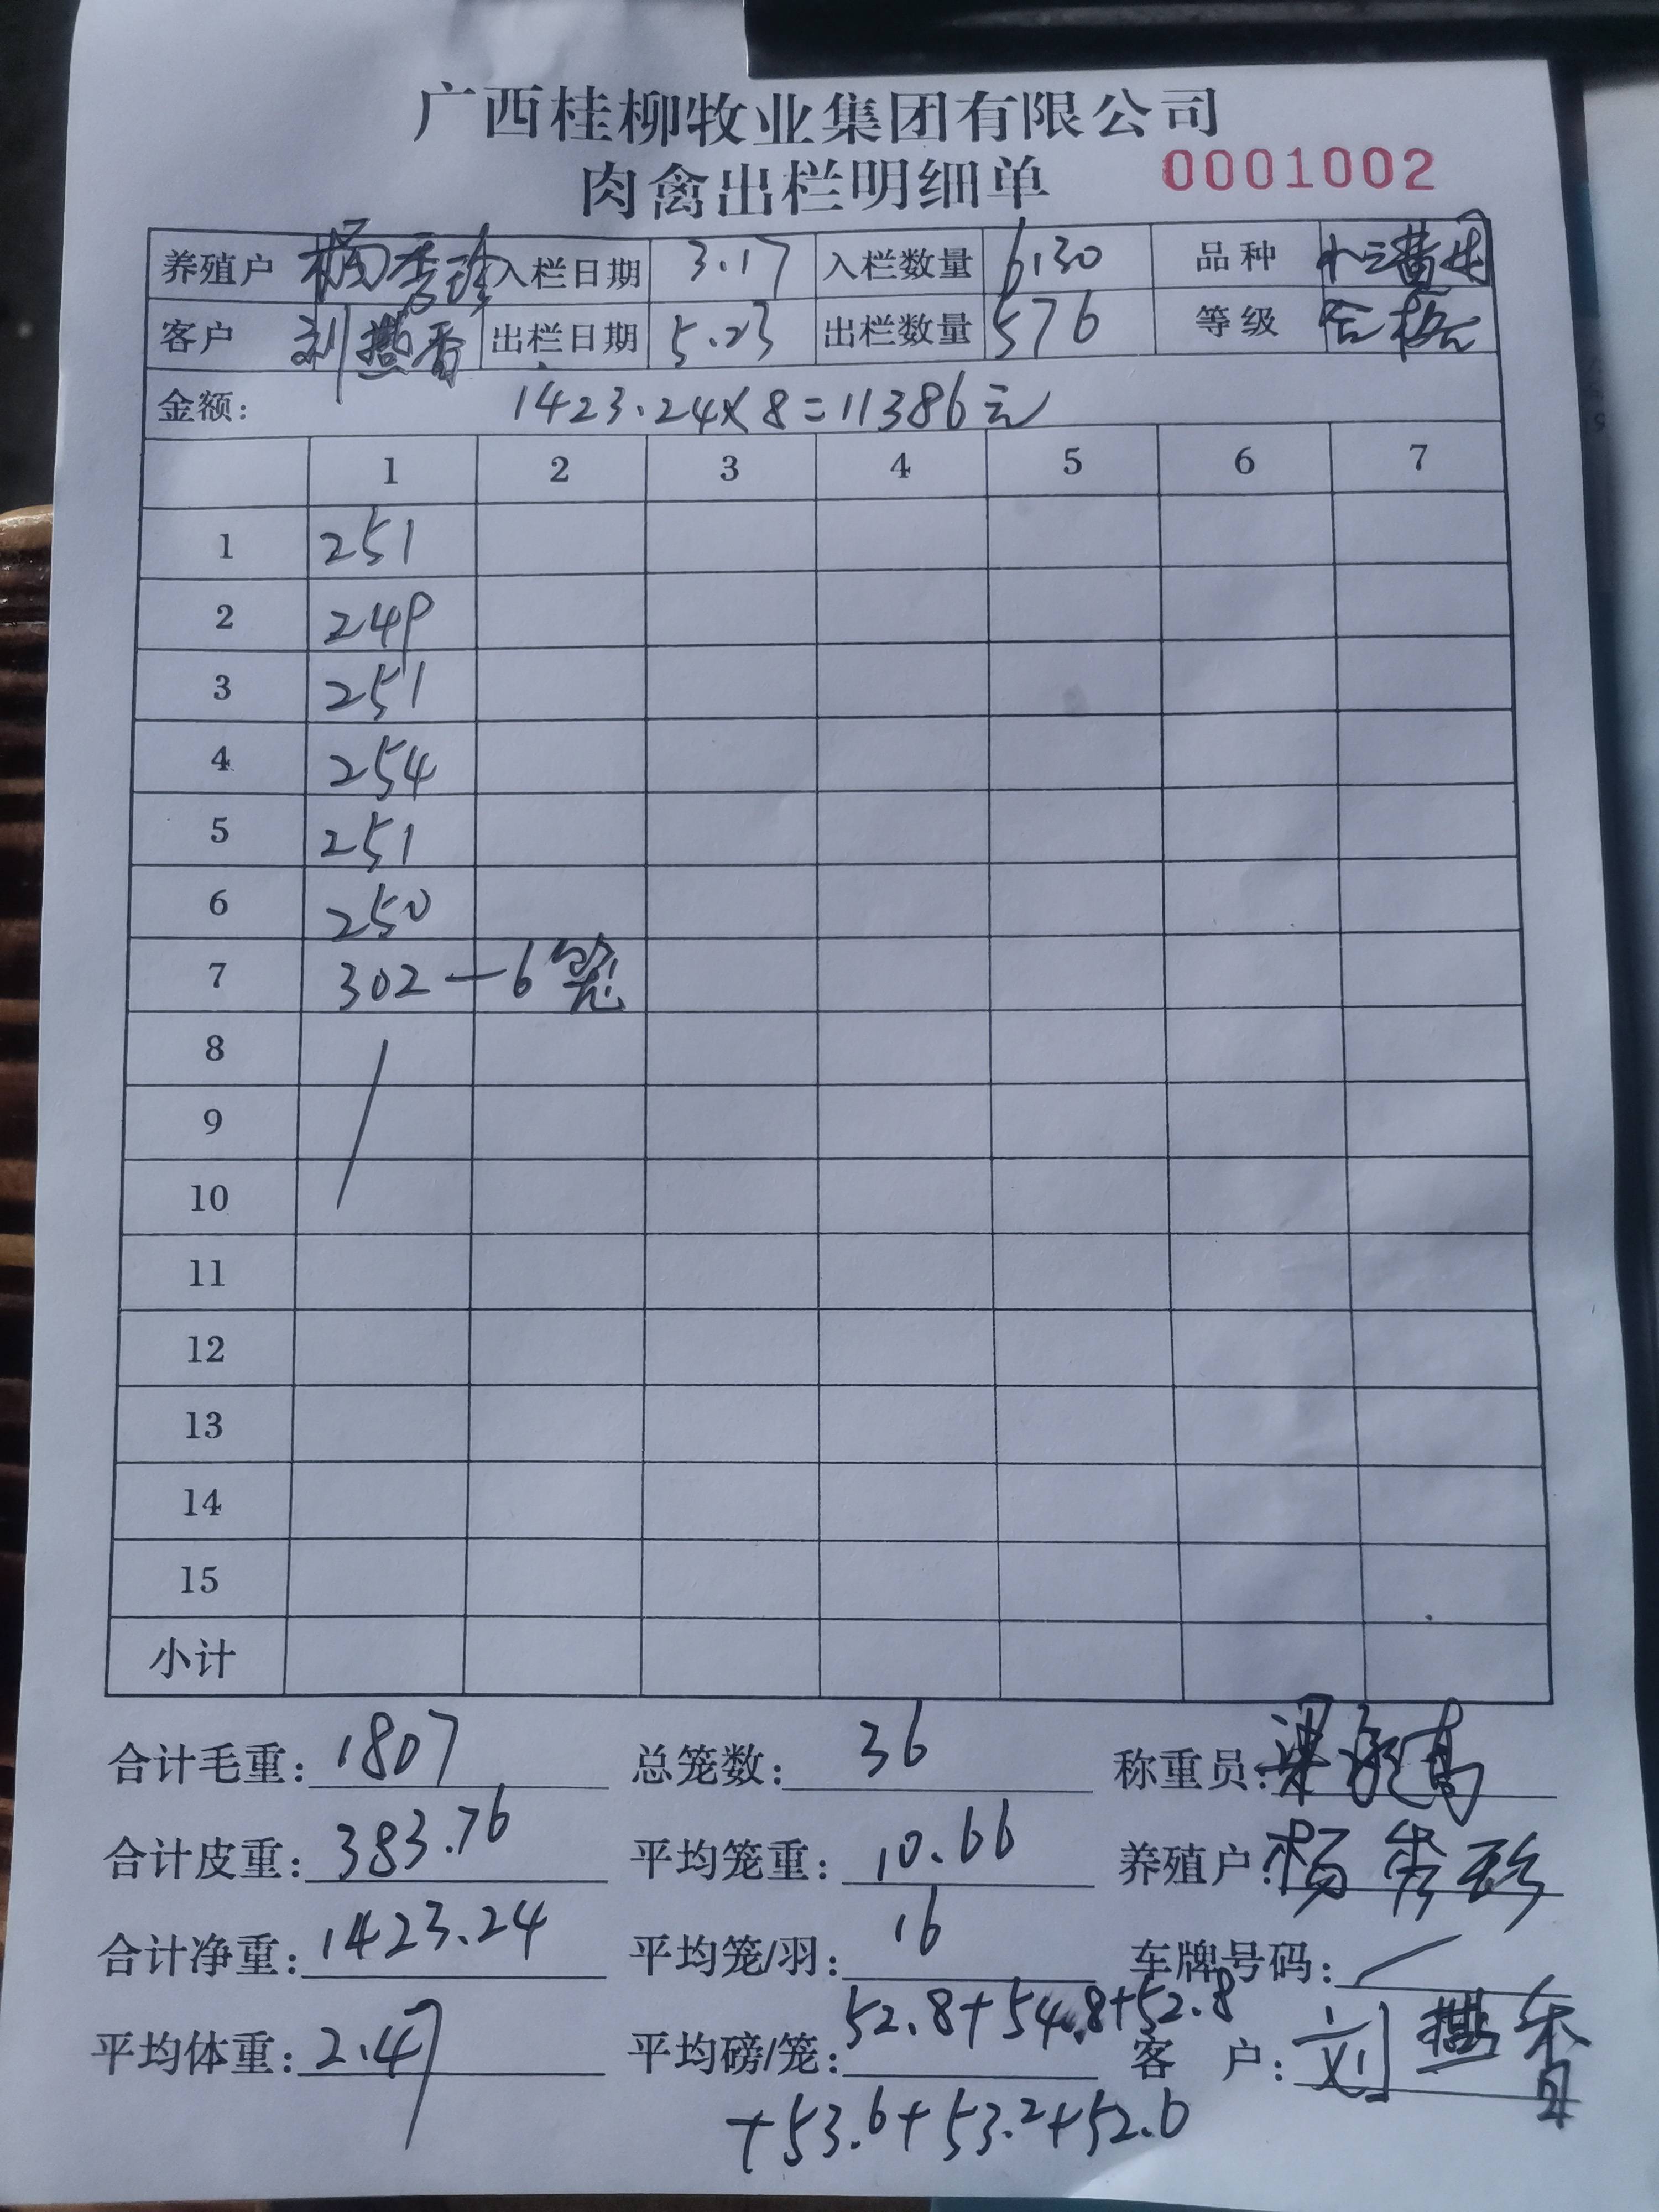 广西桂柳牧业集团有限公司
肉禽出栏明细单 0001002
养殖户 杨秀珍 入栏日期 3.17 入栏数量 6130 品种
客户 刘燕香 出栏日期 5.23 出栏数量 576 等级 合格
金额: 1423.24×8=11386元
1 2 3 4 5 6 7
1 251
2 249
3 251
4 254
5 251
6 250
7 302—6笼
8
9
10
11
12
13
14
15
小计
合计毛重: 1807 总笼数: 36 称重员:
合计皮重: 383.76 平均笼重: 10.66 养殖户: 杨秀珍
合计净重: 1423.24 平均笼/羽: 16 车牌号码: /
平均体重: 2.47 平均磅/笼: 52.8+54.8+52.8 客 户: 刘燕香
+53.6+53.2+52.6